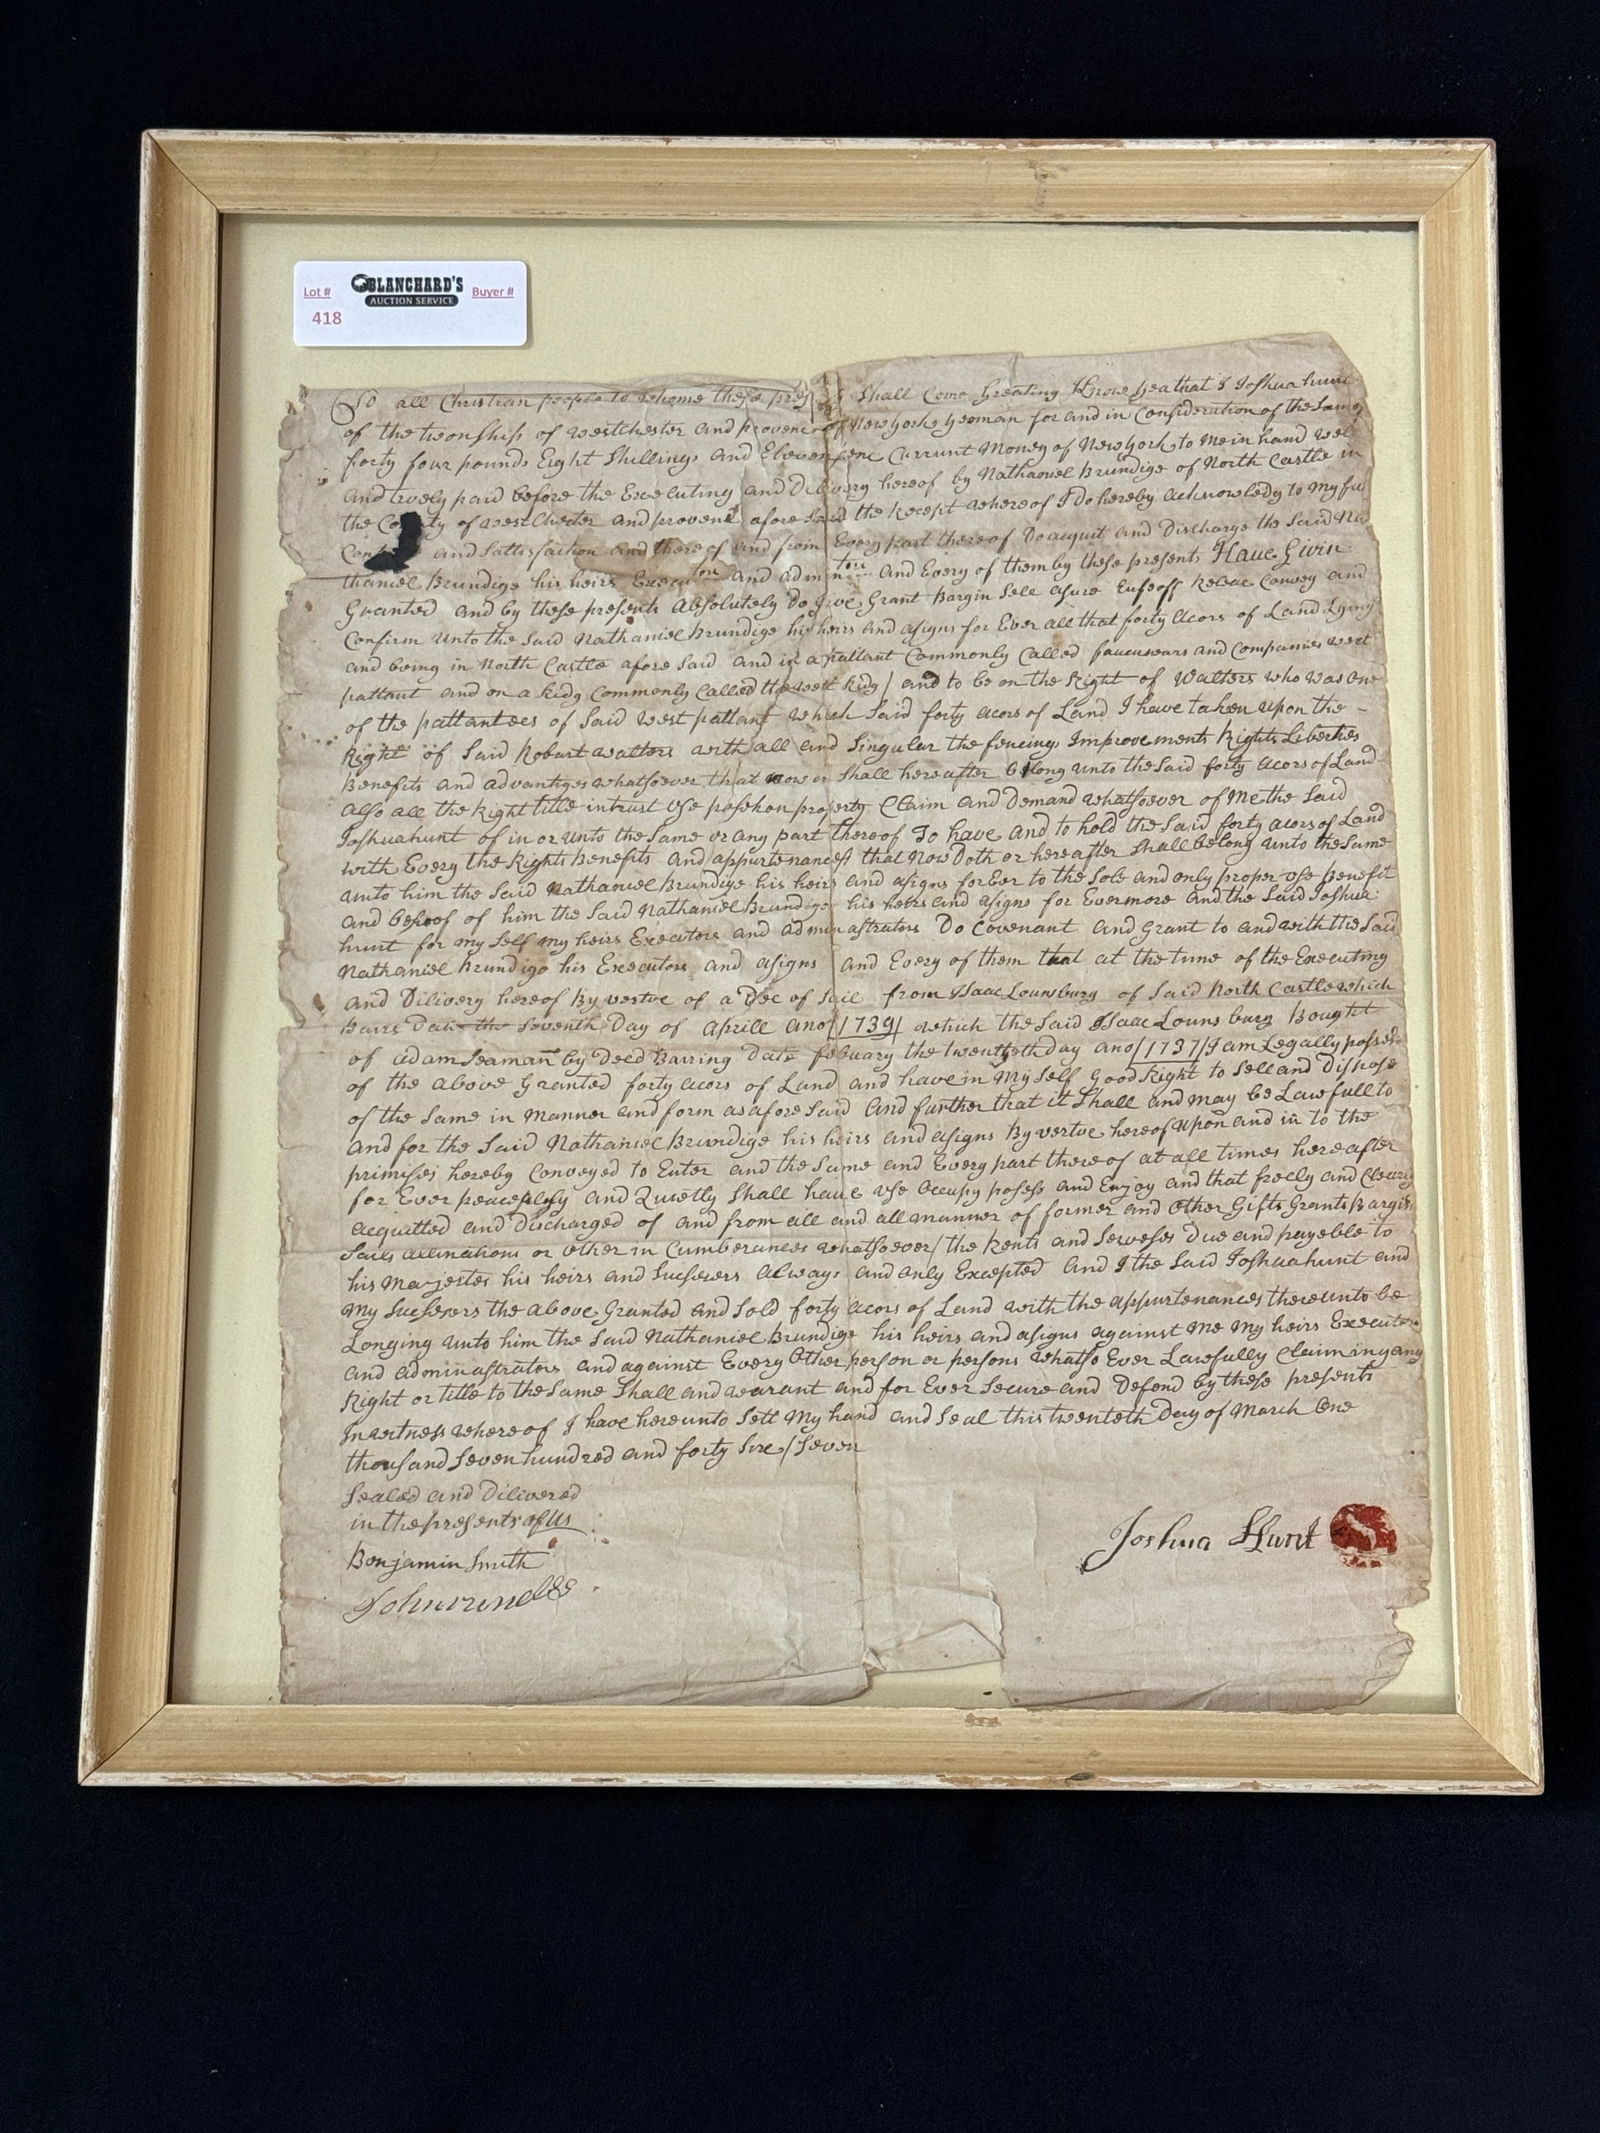 Lot #
BLANCHARD'S
AUCTION SERVICE
Buyer #
418
To all Christian people to whome these pres Shall Come Greating Know yea that I Joshua hunt
of the township of westchester and provenc of New york yeoman for and in Consideration of the Sum of
forty four pounds Eight Shillings and Elevenpenc Currunt Money of New york to me in hand wel
and truely paid before the Executing and Dilivery hereof by Nathaniel Brundige of North Castle in
the County of westChester and provenc afore Said the Recept whereof I Do hereby acknowledg to my ful
Cont and Sattisfaction and there of and from Every part there of Do acquit and Discharge the Said Na
thaniel Brundige his heirs Executors and adminators and Every of them by these presents Have Givin
Granted and by these presents Absolutely Do give Grant Bargin Sell asure Enfeoff Convey and
Confirm unto the Said Nathaniel Brundige his heirs and asigns for Ever all that forty acors of Land Lying
and being in North Castle afore Said and in a pattant Commonly Called and Companies west
pattant and on a Ridg Commonly Called the west Ridg / and to be on the Right of Walters who was one
of the pattantees of Said west pattant which Said forty acors of Land I have taken upon the -
Right of Said Robart walters with all and Singular the fencings Improvements Rights Liberties
Benefits and advantiges whatsoever that now or Shall hereafter belong unto the Said forty acors of Land
also all the Right title intrust use posesion property Claim and Demand whatsoever of Me the Said
Joshua hunt of in or unto the Same or any part thereof To have and to hold the Said forty acors of Land
with Every the Rights Benefits and appurtenances that Now Doth or hereafter Shall belong unto the Same
unto him the Said Nathaniel Brundige his heirs and asigns for Ever to the Sole and only proper use Benefit
and behoof of him the Said Nathaniel Brundige his heirs and asigns for Evermore and the Said Joshua
hunt for my Self my heirs Executors and adminastrators Do Covenant and Grant to and with the Said
Nathaniel Brundige his Executors and asigns and Every of them that at the time of the Executing
and Dilivery hereof By vertue of a Dee of Sail from Isaac Lounsburg of Said North Castle which
Barrs Date the Seventh Day of Aprill ano / 1739 / which the Said Isaac Lounsburg Bought
of adam Seaman by Deed Barring Date febuary the twentieth day ano / 1737 / I am Legally posses
of the above Granted forty acors of Land and have in My Self Good Right to Sell and Dispose
of the Same in Manner and form as afore Said and further that it Shall and may be Lawfull to
and for the Said Nathaniel Brundige his heirs and asigns By vertue hereof upon and in to the
primises hereby Conveyed to Enter and the Same and Every part there of at all times hereafter
for Ever peacefully and Quietly Shall have use occupy posess and Enjoy and that freely and Clearly
acquitted and Discharged of and from all and all manner of former and other Gifts Grants Bargins
Sails allinations or other in Cumberances whatsoever / the Rents and Serveses Due and payeble to
his Majestes his heirs and Sucsesers always and only Excepted And I the Said Joshua hunt and
my Sucsesers the above Granted and Sold forty acors of Land with the appurtenances thereunto be
Longing unto him the Said Nathaniel Brundige his heirs and asigns against me my heirs Executors
and adminastrators and against Every other person or persons whatso Ever Lawfully Claiming any
Right or title to the Same Shall and warant and for Ever Secure and Defend by these presents
In witness where of I have hereunto Sett My hand and Seal this twenteth Day of March One
thousand Seven hundred and forty Six / Seven
Sealed and Dilivered
in the presents of Us
Benjamin Smith
Joshua Hunt